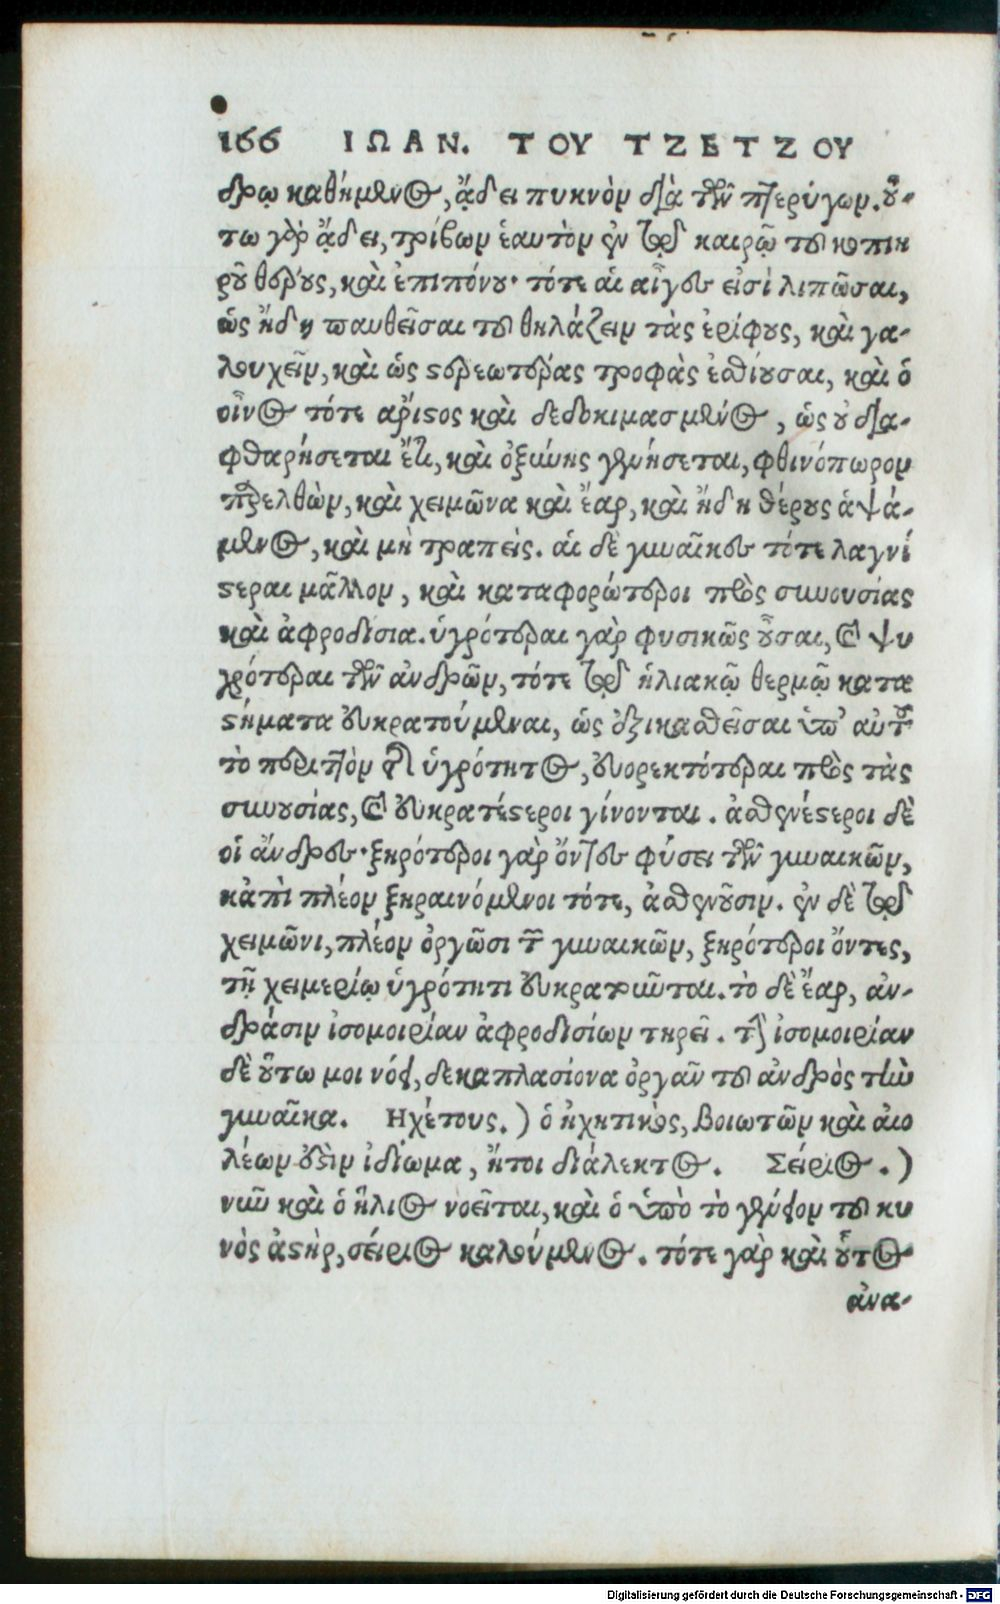 166 ΙΩΑΝ. ΤΟΥ ΤΖΕΤΖΟΥ
δρῳ καθήμενος, ᾄδει πυκνὸν διὰ τῶν πτερύγων. οὕ-
τω γὰρ ᾄδει, τρίβων ἑαυτὸν ἐν τῷ καιρῷ τοῦ κοπιη
ροῦ θέρους, καὶ ἐπιπόνου· τότε αἱ αἶγες εἰσὶ λιπῶσαι,
ὡς ἤδη παυθεῖσαι τοῦ θηλάζειν τὰς ἐρίφους, καὶ γα-
λουχεῖν, καὶ ὡς στερεωτέρας τροφὰς ἐσθίουσαι, καὶ ὁ
οἶνος τότε ἄριστος καὶ δεδοκιμασμένος, ὡς οὐ δια-
φθαρήσεται ἔτι, καὶ ὀξίνης γενήσεται, φθινόπωρον
παρελθὼν, καὶ χειμῶνα καὶ ἔαρ, καὶ ἤδη θέρους ἁψά-
μενος, καὶ μὴ τραπείς. αἱ δὲ γυναῖκες τότε λαγνί
στεραι μᾶλλον, καὶ καταφορώτεροι πρὸς συνουσίας
καὶ ἀφροδίσια. ὑγρότεραι γὰρ φυσικῶς οὖσαι, καὶ ψυ
χρότεραι τῶν ἀνδρῶν, τότε τῷ ἡλιακῷ θερμῷ κατα
στήματα εὐκρατούμεναι, ὡς ἐξικασθεῖσαι ὑπ' αὐτοῦ
τὸ περιττὸν τῆς ὑγρότητος, εὐορεκτότεραι πρὸς τὰς
συνουσίας, καὶ εὐκρατέστεροι γίνονται. ἀσθενέστεροι δὲ
οἱ ἄνδρες· ξηρότεροι γὰρ ὄντες φύσει τῶν γυναικῶν,
κἀπὶ πλέον ξηραινόμενοι τότε, ἀσθενοῦσιν. ἐν δὲ τῷ
χειμῶνι, πλέον ὀργῶσι τῶν γυναικῶν, ξηρότεροι ὄντες,
τῇ χειμερίῳ ὑγρότητι εὐκρατοῦνται. τὸ δὲ ἔαρ, ἀν-
δράσιν ἰσομοιρίαν ἀφροδισίων τηρεῖ. τὴν ἰσομοιρίαν
δὲ οὕτω μοι νόει, δεκαπλασίονα ὀργᾶν τοῦ ἀνδρὸς τὴν
γυναῖκα. Ηχέτους.) ὁ ἠχητικὸς, Βοιωτῶν καὶ αἰο
λέων ἐστὶν ἰδίωμα, ἤτοι διάλεκτος. Σείριος.)
νῦν καὶ ὁ ἥλιος νοεῖται, καὶ ὁ ὑπὸ τὸ γένειον τοῦ κυ
νὸς ἀστὴρ, σείριος καλούμενος. τότε γὰρ καὶ οὗτος
ἀνα-
Digitalisierung gefördert durch die Deutsche Forschungsgemeinschaft - DFG